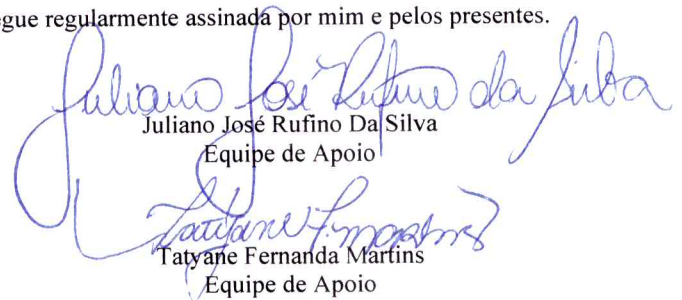 egue regularmente assinada por mim e pelos presentes.
Juliano José Rufino da Silva
Juliano José Rufino Da Silva
Equipe de Apoio
Tatyane F. Martins
Tatyane Fernanda Martins
Equipe de Apoio